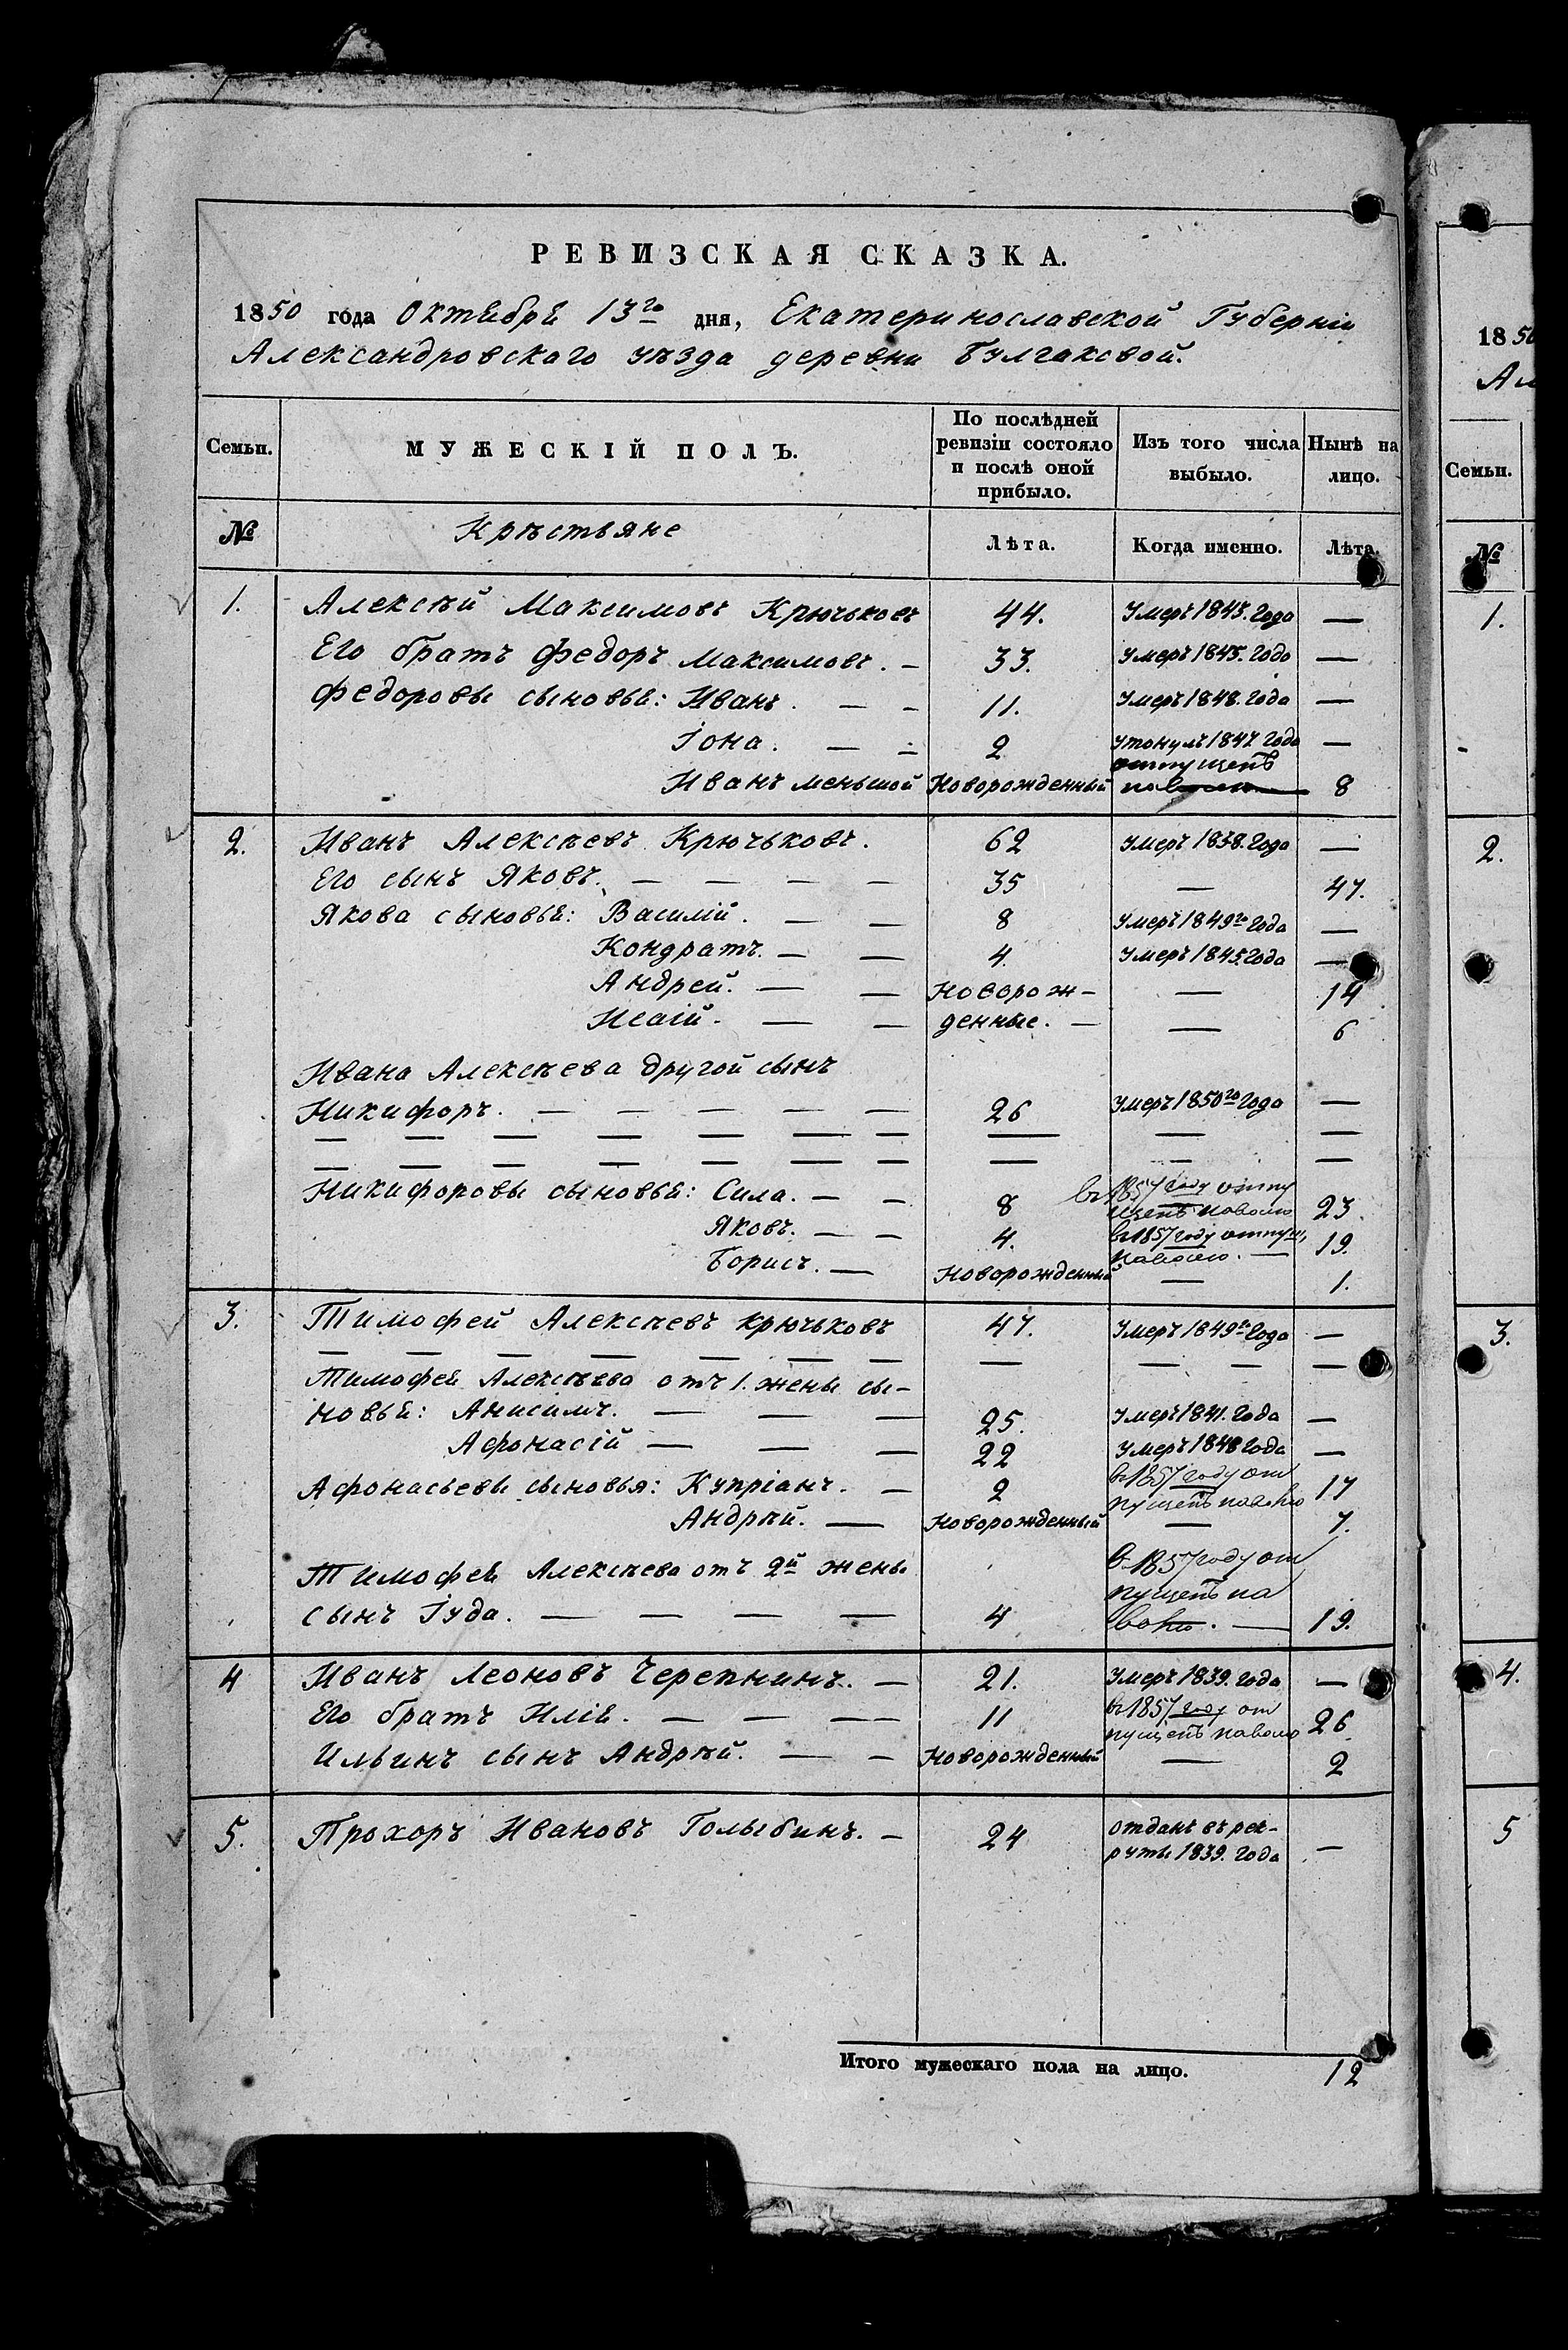 РЕВИЗСКАЯ СКАЗКА.
1850 года Октября 13го дня, Екатеринославской Губерніи
Александровскаго уѣзда деревни Булгаковой.
Семьи. МУЖЕСКІЙ ПОЛЪ. По послѣдней ревизіи состояло и послѣ оной прибыло. Изъ того числа выбыло. Нынѣ на лицо.
№ Крѣстьяне Лѣта. Когда именно. Лѣта.
1. Алексѣй Максимовъ Крючьковъ 44. Умеръ 1843. года —
Его братъ Федоръ Максимовъ. — 33. Умеръ 1845. года —
Федоровы сыновья: Иванъ. — — 11. Умеръ 1848. года —
Іона. — — 2 утонулъ 1847 года —
отпущенъ
Иванъ меньшой Новорожденный 8
2. Иванъ Алексѣевъ Крючьковъ. 62 Умеръ 1838. года —
Его сынъ Яковъ. — — — — 35 — 47.
Якова сыновья: Василій. — — 8 Умеръ 1849го года —
Кондратъ. — — 4. Умеръ 1845. года —
Андрей. — — Новорож- — 14
Исаій. — — денные. — — 6
Ивана Алексѣева другой сынъ
Никифоръ. — — — — — 26 Умеръ 1850го года —
— — — — — — — — — —
— — — — — — — — — —
Никифоровы сыновья: Сила. — — 8 въ 1857 году отпу
щенъ наволю 23
Яковъ. — — 4. въ 1857 году отпущ,
наволю. — 19.
Борисъ. — Новорожденный — 1.
3. Тимофей Алексѣевъ Крючьковъ 47. Умеръ 1849го года —
— — — — — — — — — — —
Тимофея Алексѣева отъ 1. жены сы-
новья: Анисимъ. — — — 25. Умеръ 1841. года —
Афонасій — — — 22 Умеръ 1848 года —
Афонасьевы сыновья: Купріанъ. — 2 въ 1857 году от
пущенъ наволю 17
Андрѣй. — Новорожденный — 7.
Тимофея Алексѣева отъ 2й жены въ 1857 году от
пущенъ на
сынъ Іуда. — — — — 4 волю. — 19.
4 Иванъ Леоновъ Черепнинъ. — 21. Умеръ 1839. года —
Его братъ Илія. — — — — 11 въ 1857 году от
пущенъ наволю 26
Ильинъ сынъ Андрѣй. — — Новорожденный — 2
5. Прохоръ Ивановъ Голыбинъ. — 24 отданъ въ рек-
руты 1839. года —
Итого мужескаго пола на лицо. 12
1850
Ал
Семьи.
№
1.
2.
3.
4.
5